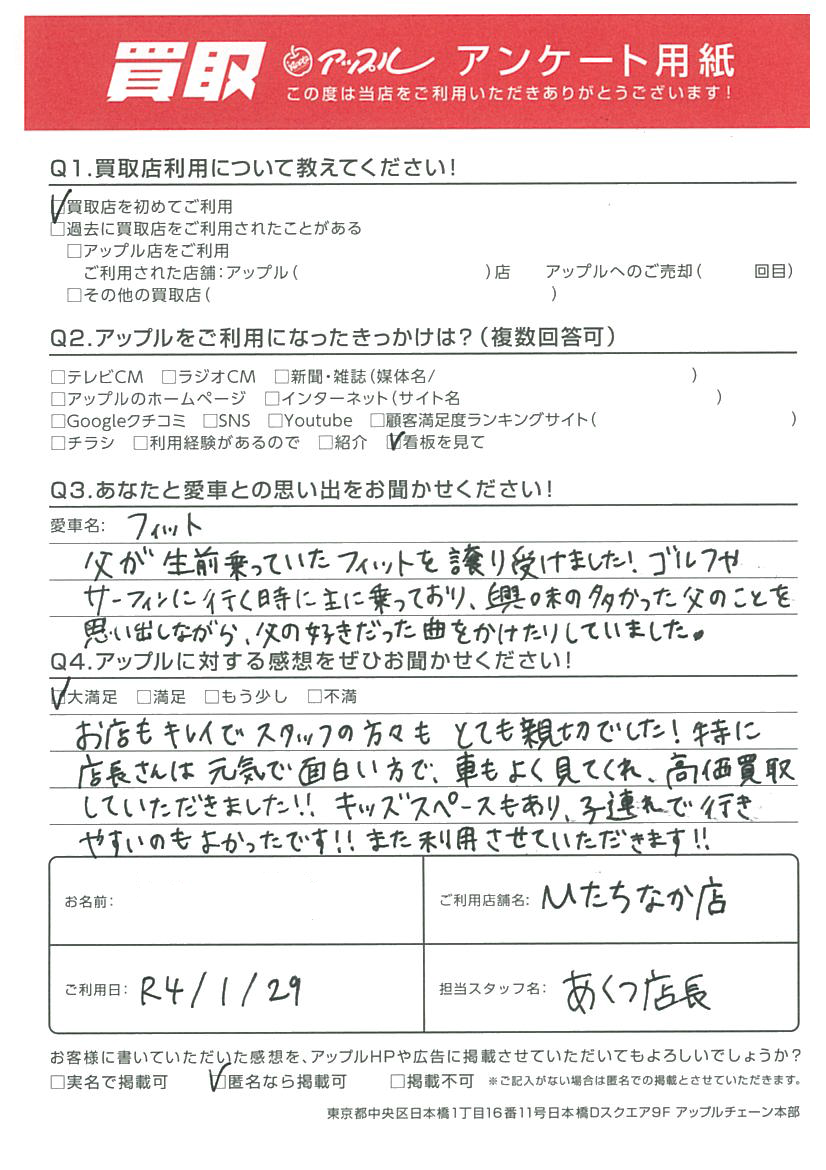 買取 アップル アンケート用紙
この度は当店をご利用いただきありがとうございます!
Q1.買取店利用について教えてください!
☑買取店を初めてご利用
□過去に買取店をご利用されたことがある
□アップル店をご利用
ご利用された店舗:アップル( )店 アップルへのご売却( 回目)
□その他の買取店( )
Q2.アップルをご利用になったきっかけは?(複数回答可)
□テレビCM □ラジオCM □新聞・雑誌(媒体名/ )
□アップルのホームページ □インターネット(サイト名 )
□Googleクチコミ □SNS □Youtube □顧客満足度ランキングサイト( )
□チラシ □利用経験があるので □紹介 ☑看板を見て
Q3.あなたと愛車との思い出をお聞かせください!
愛車名: フィット
父が生前乗っていたフィットを譲り受けました!ゴルフや
サーフィンに行く時に主に乗っており、興味の多かった父のことを
思い出しながら、父の好きだった曲をかけたりしていました。
Q4.アップルに対する感想をぜひお聞かせください!
☑大満足 □満足 □もう少し □不満
お店もキレイでスタッフの方々もとても親切でした!特に
店長さんは元気で面白い方で、車もよく見てくれ、高価買取
していただきました!!キッズスペースもあり、子連れで行き
やすいのもよかったです!!また利用させていただきます!!
お名前:
ご利用店舗名: ひたちなか店
ご利用日: R4/1/29
担当スタッフ名: あくつ店長
お客様に書いていただいた感想を、アップルHPや広告に掲載させていただいてもよろしいでしょうか?
□実名で掲載可 ☑匿名なら掲載可 □掲載不可 ※ご記入がない場合は匿名での掲載とさせていただきます。
東京都中央区日本橋1丁目16番11号日本橋Dスクエア9F アップルチェーン本部